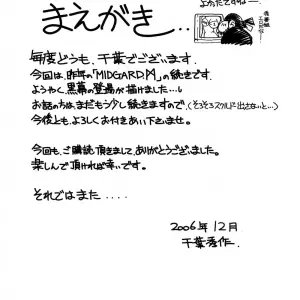 よかったですねー
まえがき...
毎度どうも、千葉でございます.
今回は、昨年の「MIDGARD」の続きです.
ようやく黒幕の登場が描けました...
お話の方は、まだもう少し続きますので、(そろそろスクルド出さないと…)
今後とも、よろしくお付きあい下さいませ。
今回も、ご購読頂きまして、ありがとうございました。
楽しんで頂ければ幸いです。
それではまた....
2006年12月
千葉秀作.